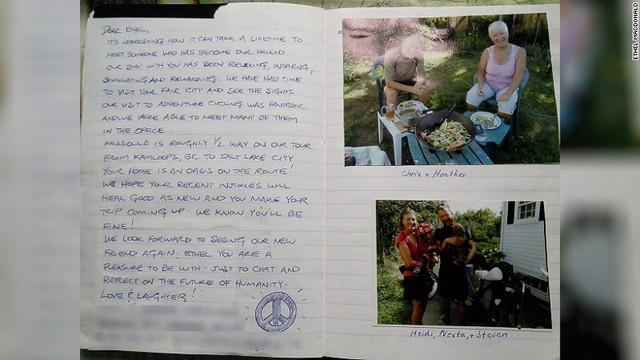 DEAR ETHEL,
IT'S INTERESTING HOW IT CAN TAKE A LIFETIME TO
MEET SOMEONE WHO HAS BECOME OUR FRIEND.
OUR STAY WITH YOU HAS BEEN RELAXING, INSPIRING,
STIMULATING AND REWARDING. WE HAVE HAD TIME
TO VISIT YOUR FAIR CITY AND SEE THE SIGHTS.
OUR VISIT TO ADVENTURE CYCLING WAS FANTASTIC
AND WE WERE ABLE TO MEET MANY OF THEM
IN THE OFFICE.
MISSOULA IS ROUGHLY 1/2 WAY ON OUR TOUR
FROM KAMLOOPS, BC TO SALT LAKE CITY.
YOUR HOME IS AN OASIS ON THE ROUTE!
WE HOPE YOUR RECENT INJURIES WILL
HEAL GOOD AS NEW AND YOU MAKE YOUR
TRIP COMING UP. WE KNOW YOU'LL BE
FINE!
WE LOOK FORWARD TO SEEING OUR NEW
FRIEND AGAIN. ETHEL YOU ARE A
PLEASURE TO BE WITH. JUST TO CHAT AND
REFLECT ON THE FUTURE OF HUMANITY.
LOVE & LAUGHTER!
Chris + Heather
Heidi, Nesta, + Steven
ETHEL MACDONALD